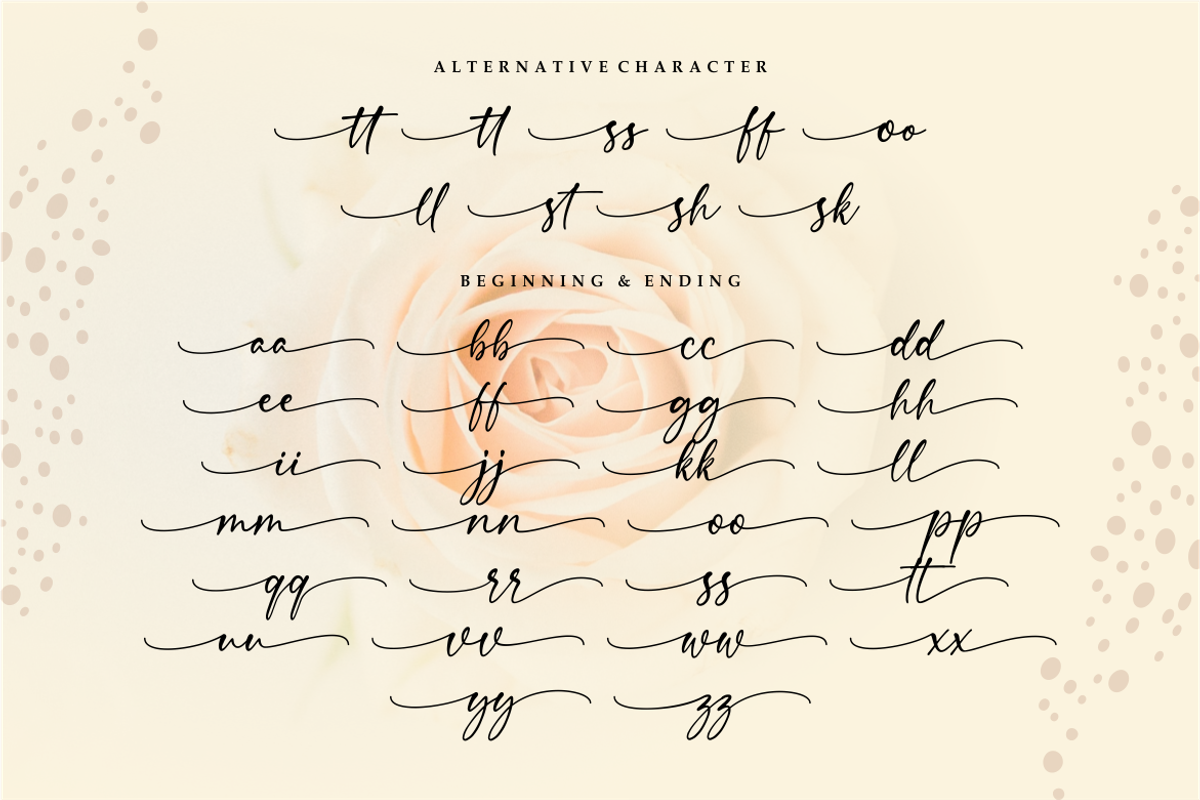 ALTERNATIVE CHARACTER
tt tt ss ff oo
ll st sh sk
BEGINNING & ENDING
aa bb cc dd
ee ff gg hh
ii jj kk ll
mm nn oo pp
qq rr ss tt
uu vv ww xx
yy zz